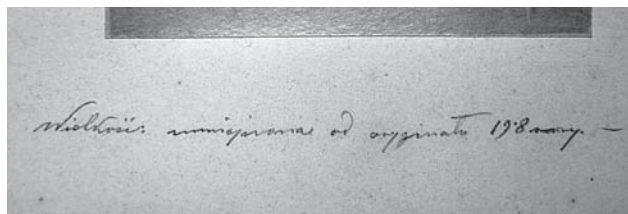 Wielkość: zmniejszona od oryginału 19·8 razy. —